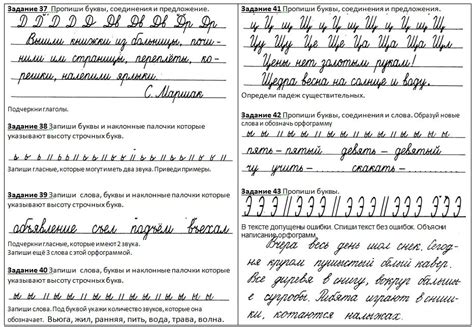 Задание 37 Пропиши буквы, соединения и предложение.
Д Д Д Д Д Дв Дв Дв Др Др
Вышли книжки из больницы, почи-
нили им страницы, переплёты, ко-
решки, налепили ярлыки.
С. Маршак
Подчеркни глаголы.
Задание 38 Запиши буквы и наклонные палочки которые
указывают высоту строчных букв.
Запиши гласные, которые могут иметь два звука. Приведи примеры.
Задание 39 Запиши слова, буквы и наклонные палочки которые
указывают высоту строчных букв.
объявление съел подъём въехал
Подчеркни гласные, которые имеют 2 звука.
Запиши ещё 3 слова с этой орфограммой.
Задание 40 Запиши слова, буквы и наклонные палочки которые
указывают высоту строчных букв.
Запиши слова. Под буквой укажи количество звуков, которые она
обозначает. Вьюга, жил, ранняя, пить, вода, трава, волна.
Задание 41 Пропиши буквы, соединения и предложения.
Ц Щ Ц Щ Ц Щ Ц Щ Ц Щ
Цу Щу Це Ще Ца Ща Ця Щл
Цены нет золотым рукам!
Щедра весна на солнце и воду.
Определи падеж существительных.
Задание 42 Пропиши буквы, соединения и слова. Образуй новые
слова и обозначь орфограмму
пять-пятый девять-девятый
чу учить- скакать-
Задание 43 Пропиши буквы.
В тексте допущены ошибки. Спиши текст без ошибок. Объясни
написание орфограмм.
Вчера весь день шол снек. Сегод-
ня кругом пушыстый белый кавёр.
Все диревя в снигу, вокруг больш-
е сугробы. Ребята играют в снишк-
ки, котаются налыжах.